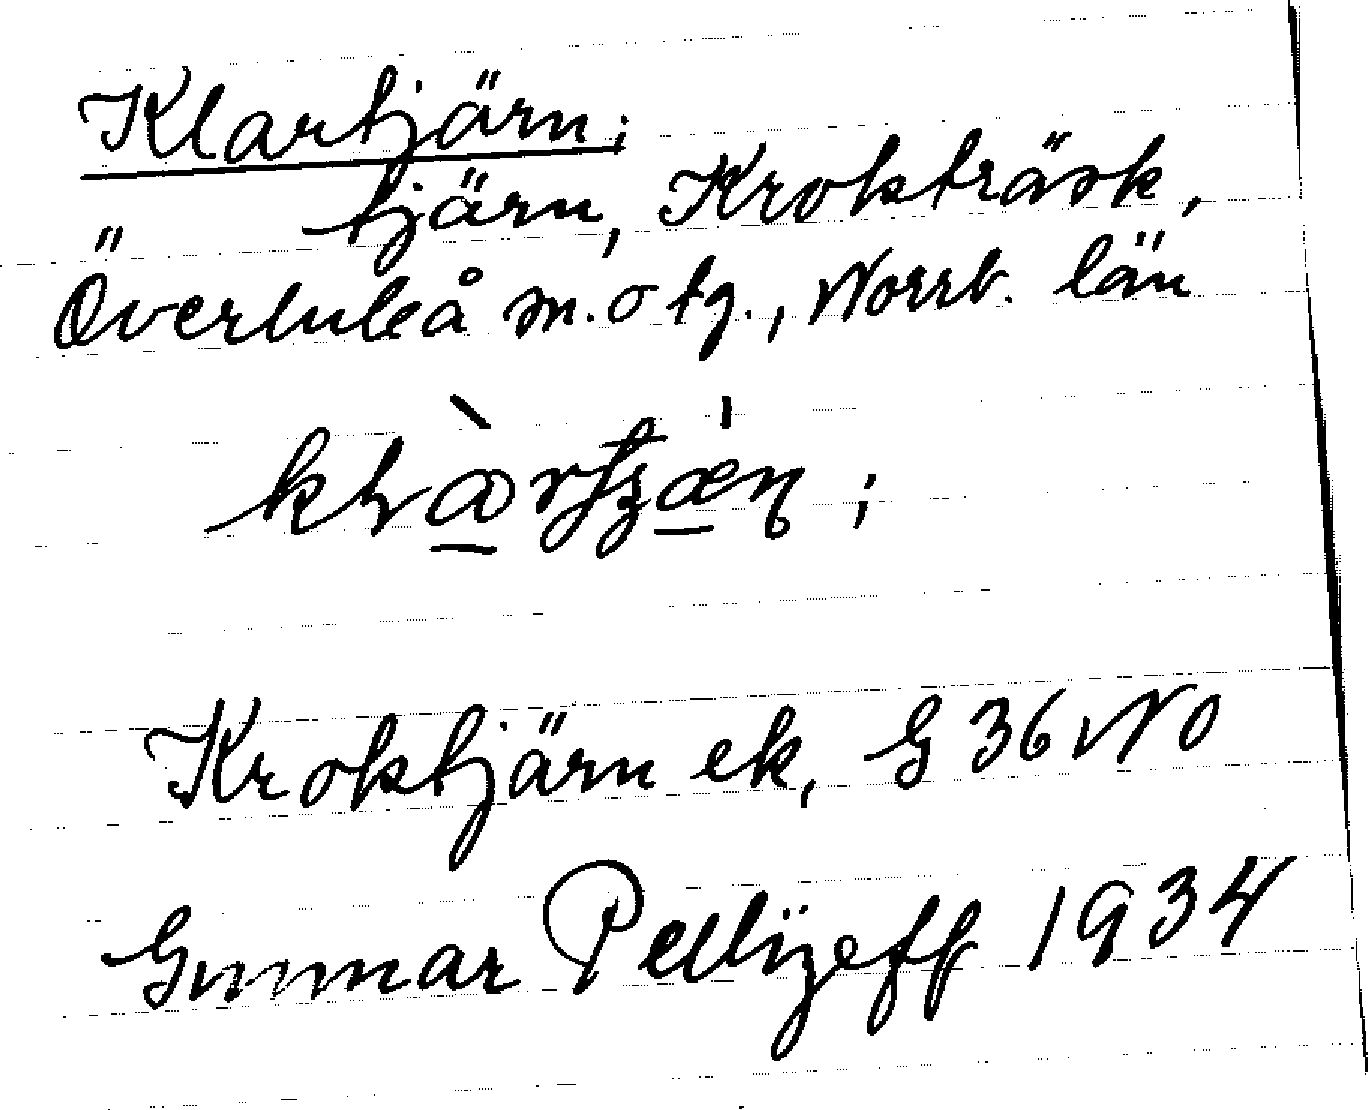 Klartjärn;
tjärn, Krokträsk,
Överluleå sn. o tg., Norrb. län
Kroktjärn ek, G 36 No
Gunnar Pellijeff 1934